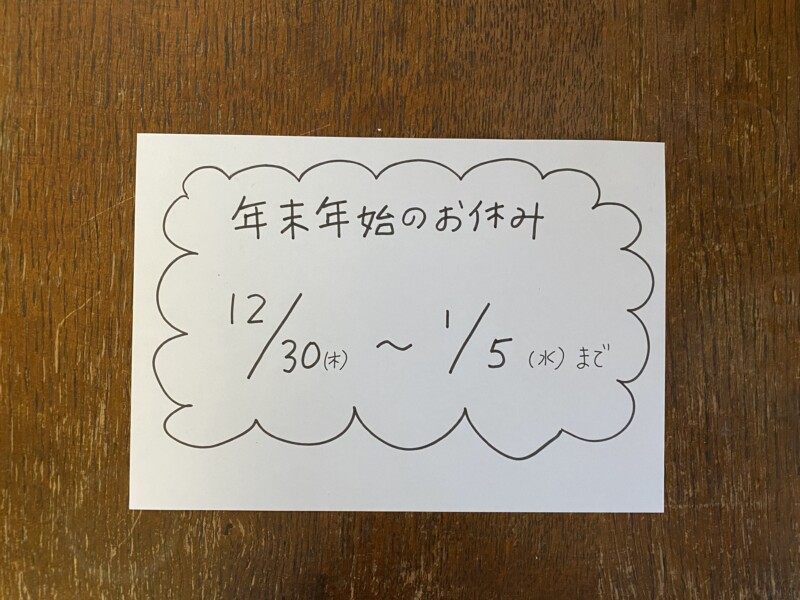 年末年始のお休み
12/30(木) 〜 1/5(水)まで